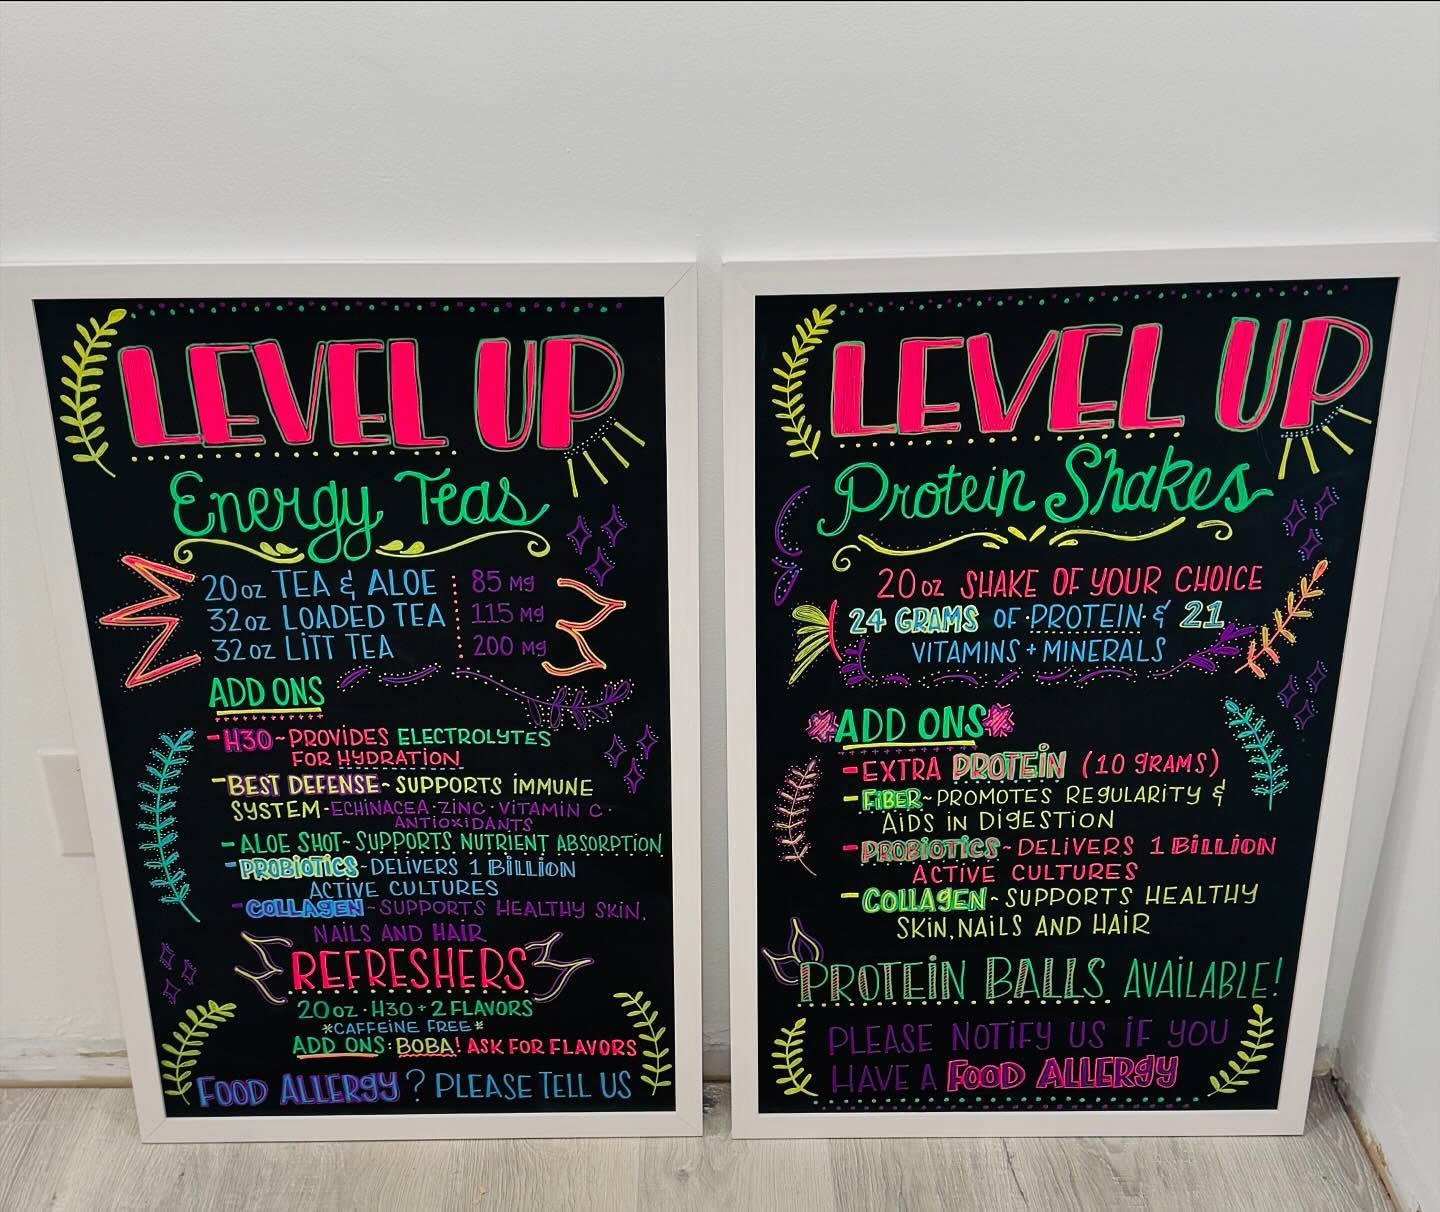 LEVEL UP
Energy Teas
20oz TEA & ALOE 85 Mg
32oz LOADED TEA 115 Mg
32oz LiTT TEA 200 Mg
ADD ONS
-H30~PROViDES ELECTROLYTES
FOR HYDRATiON
-BEST DEFENSE~SUPPORTS iMMUNE
SYSTEM-ECHiNACEA·ZiNC·ViTAMiN C·
ANTiOXiDANTS
-ALOE SHOT~SUPPORTS NUTRiENT ABSORPTiON
-PROBiOTiCS-DELiVERS 1 BiLLiON
ACTiVE CULTURES
-COLLAgEN~SUPPORTS HEALTHY SKiN,
NAiLS AND HAiR
REFRESHERS
20oz·H30+2 FLAVORS
*CAFFEiNE FREE*
ADD ONS: BOBA! ASK FOR FLAVORS
FOOD ALLERgy? PLEASE TELL US
LEVEL UP
Protein Shakes
20oz SHAKE OF YOUR CHOiCE
24 GRAMS OF PROTEiN & 21
ViTAMiNS + MiNERALS
ADD ONS
-EXTRA PROTEiN (10 gRAMS)
-FiBER~PROMOTES REgULARiTY &
AiDS iN DigESTiON
-PROBiOTiCS-DELiVERS 1 BiLLiON
ACTiVE CULTURES
-COLLAgEN~SUPPORTS HEALTHY
SKiN, NAiLS AND HAiR
PROTEiN BALLS AVAiLABLE!
PLEASE NOTiFY US iF YOU
HAVE A FOOD ALLERgy